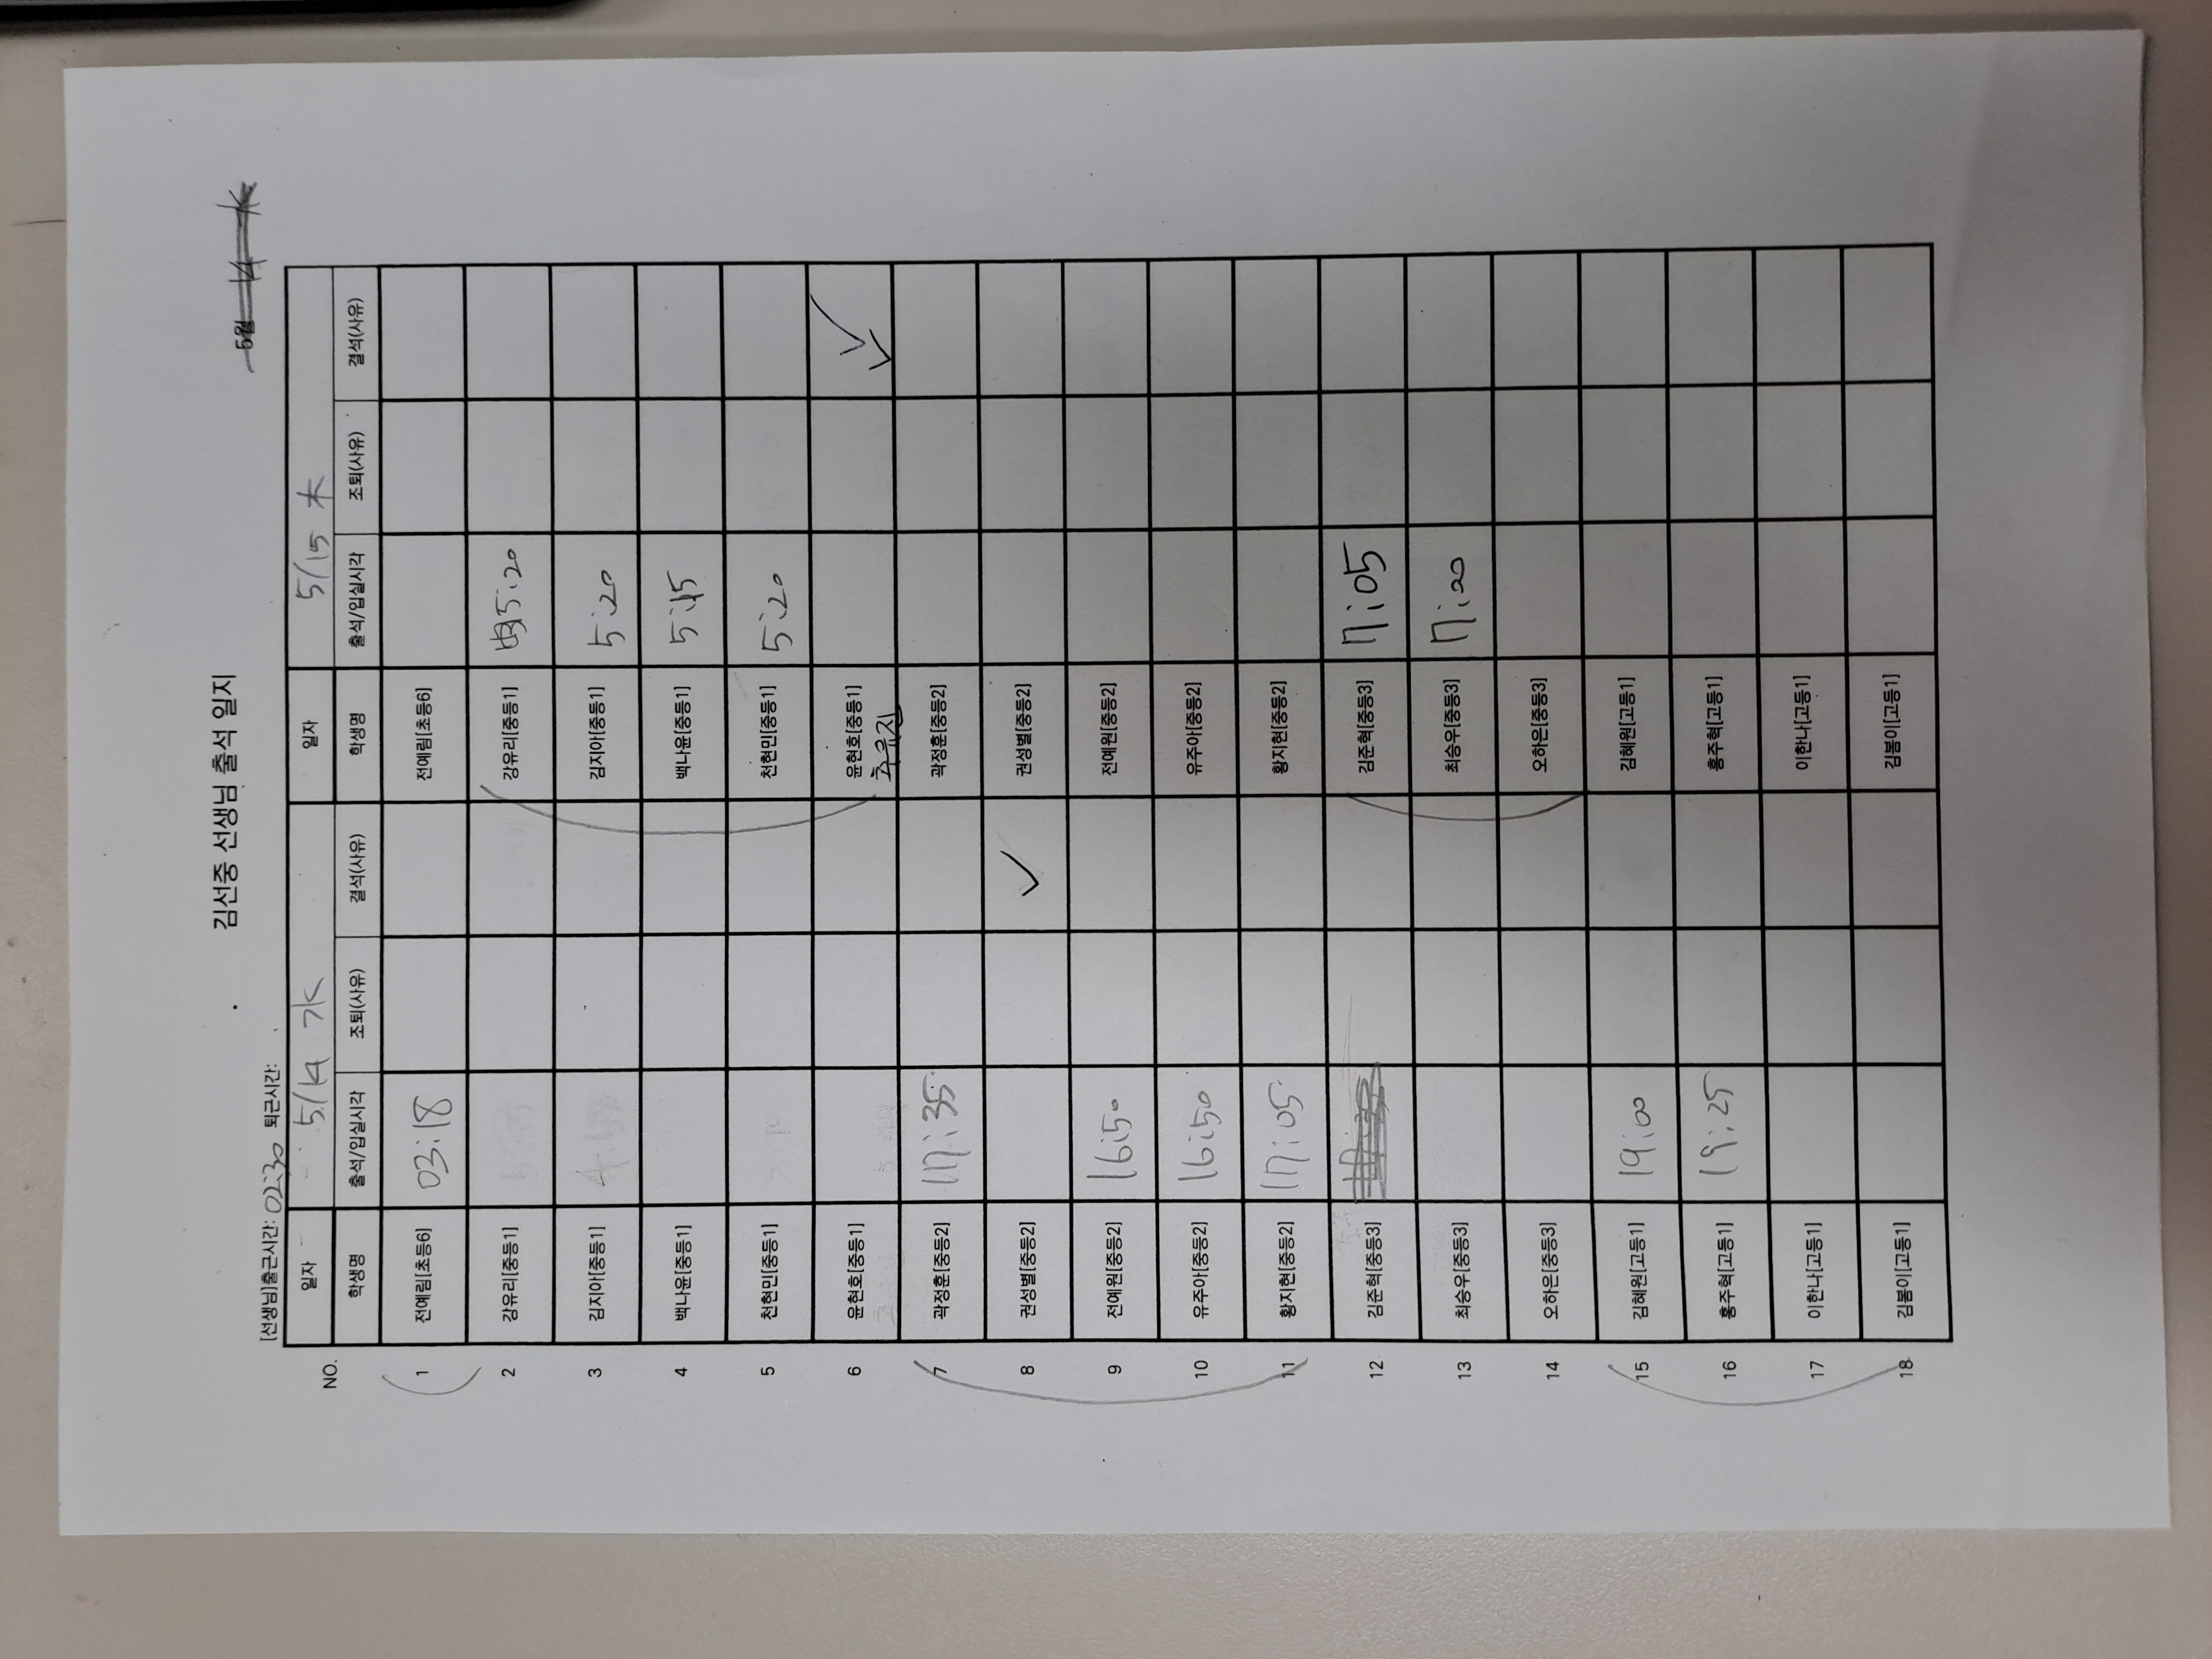 김선중 선생님 출석 일지
5월 14 水
[선생님]출근시간: 02:30 퇴근시간:
NO. 일자 5/14 水 일자 5/15 木
학생명 출석/입실시각 조퇴(사유) 결석(사유) 학생명 출석/입실시각 조퇴(사유) 결석(사유)
1 전예림[초등6] 03:18 전예림[초등6]
2 강유리[중등1] 강유리[중등1] 5:20
3 김지아[중등1] 김지아[중등1] 5:20
4 백나윤[중등1] 백나윤[중등1] 5:15
5 천현민[중등1] 천현민[중등1] 5:20
6 윤현호[중등1] 윤현호[중등1] ✓
추유진 ✓
7 곽정훈[중등2] 17:35 곽정훈[중등2]
8 권성별[중등2] ✓ 권성별[중등2]
9 전예원[중등2] 16:50 전예원[중등2]
10 유주아[중등2] 16:50 유주아[중등2]
11 황지현[중등2] 17:05 황지현[중등2]
12 김준혁[중등3] 김준혁[중등3] 17:05
13 최승우[중등3] 최승우[중등3] 17:00
14 오하은[중등3] 오하은[중등3]
15 김혜원[고등1] 19:00 김혜원[고등1]
16 홍주혁[고등1] 19:25 홍주혁[고등1]
17 이한나[고등1] 이한나[고등1]
18 김봄이[고등1] 김봄이[고등1]